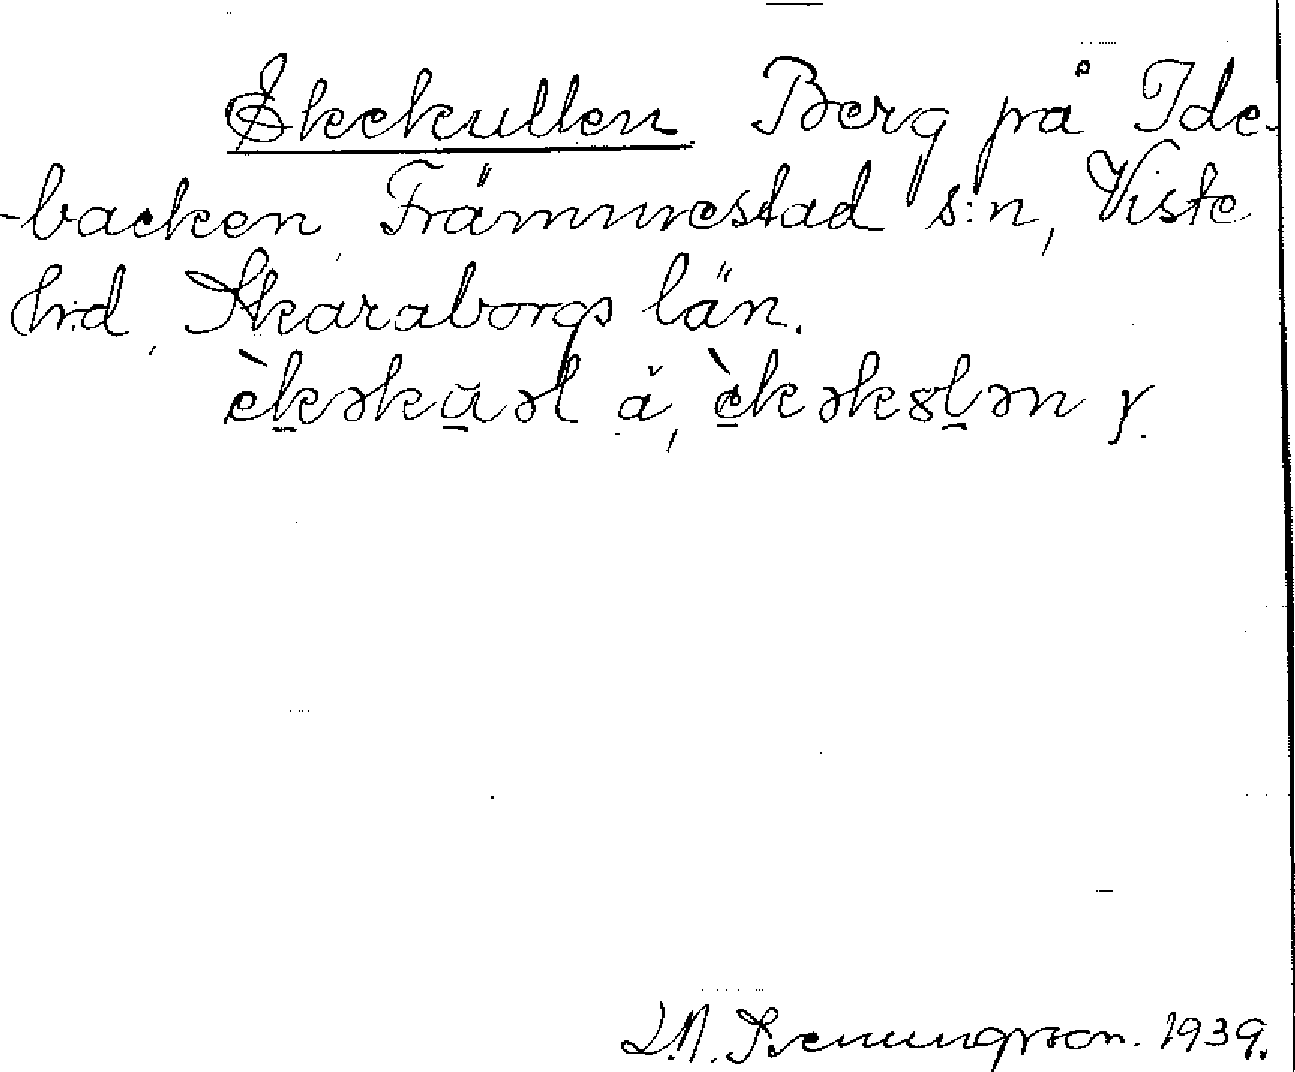 Ekekullen Berg på Ide-
-backen, Främmestad s:n, Viste
hd, Skaraborgs län.
èkəkŭəl ă, èkəkɞlən y.
S.A. Svenungsson. 1939.